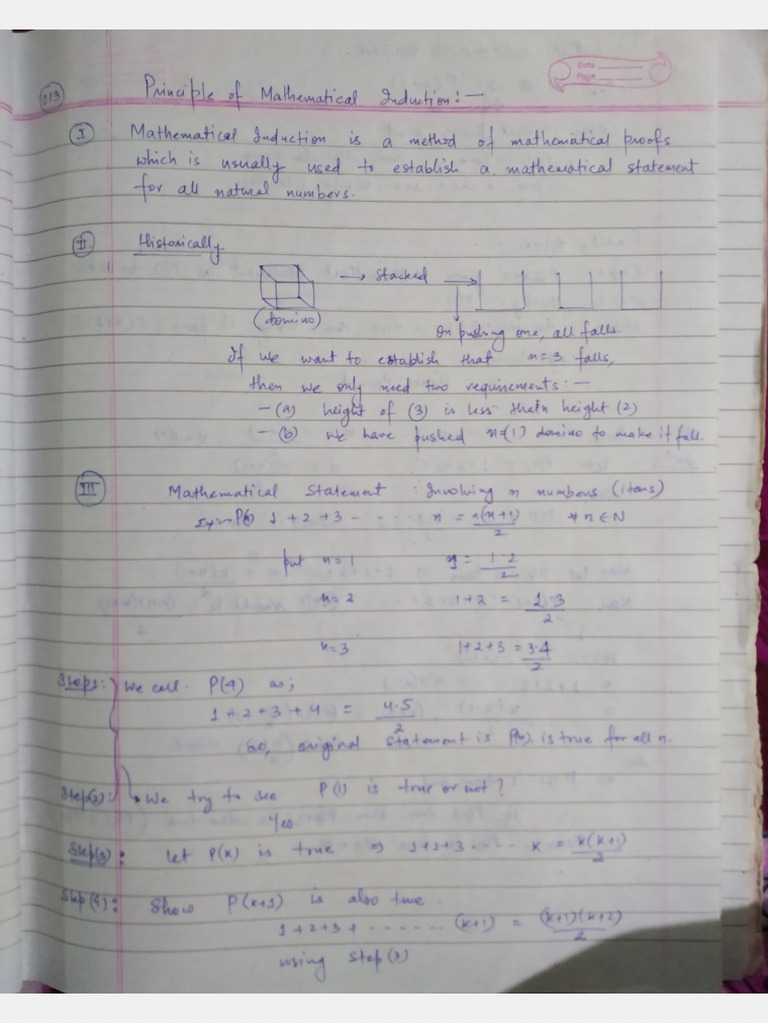 Date
Page
213
Principle of Mathematical Induction:—
I Mathematical Induction is a method of mathematical proofs
which is usually used to establish a mathematical statement
for all natural numbers.
II Historically
→ stacked →
(domino)
On pushing one, all falls
If we want to establish that n=3 falls,
then we only need two requirements:—
-(a) height of (3) is less thatn height (2)
-(b) we have pushed n=(1) domino to make it fall.
III Mathematical Statement : Involving n numbers (items)
Ex:- P(n) 1+2+3- - - - - n = n(n+1)/2 ∀ n ∈ N
put n=1 1 = 1·2/2
n=2 1+2 = 2·3/2
n=3 1+2+3 = 3·4/2
Step1: We call P(4) as;
1+2+3+4 = 4·5/2
So, original statement is P(n) is true for all n.
Step(2): → We try to see P(1) is true or not?
Yes
Step(3): let P(k) is true ⇒ 1+2+3 - - - k = k(k+1)/2
Step(4): Show P(k+1) is also true
1+2+3+ - - - - - - (k+1) = (k+1)(k+2)/2
using step(3)